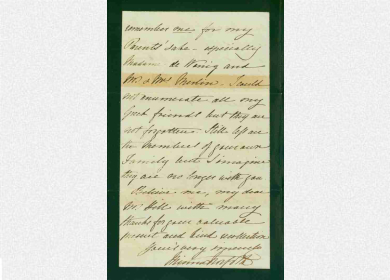 remember me, for my
Parents' sake - especially
de Konig and
Mr. & Mrs. I could
not enumerate all my
good friends but they are
not forgotten. Still less are
the members of your own
Family but I imagine
they are no longer with you
Believe me, my dear
Mr. Hill with many
thanks for your valuable
present and kind
Yours very